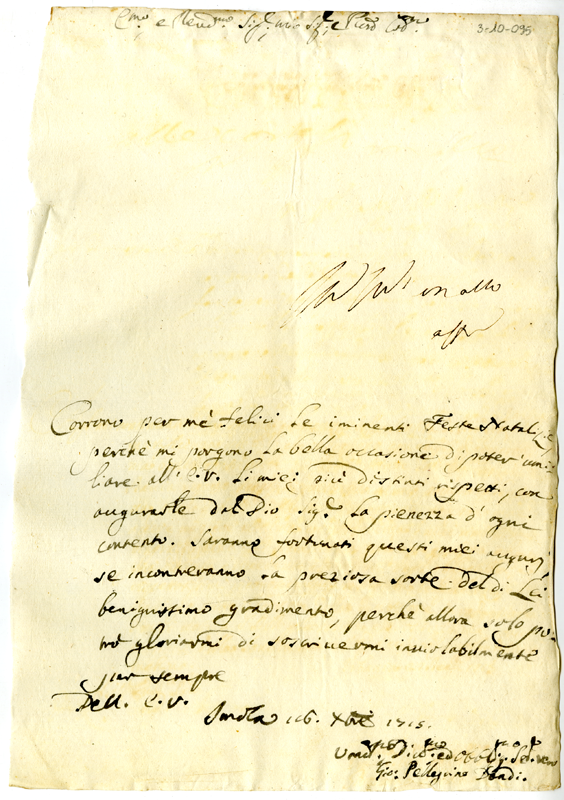 E.mo e Rev.mo Sig.r mio Sig.r e P.ron Col.mo
3-10-095
Corrono per mè felici le iminenti Feste Natalizie
perchè mi porgono la bella occasione di poter umi
liare all' E.V. li miei più distinti rispetti, con
augurarle dal Dio Sig.r la pienezza d' ogni
contento. Saranno fortunati questi miei augurj
se incontreranno la preziosa sorte del di Lei
benignissimo gradimento, perchè allora solo po-
trò gloriarmi di soscrivermi inviolabilmente
per sempre
Dell. E.V.
Imola 16. Xbre 1715.
Gio: Pellegrino